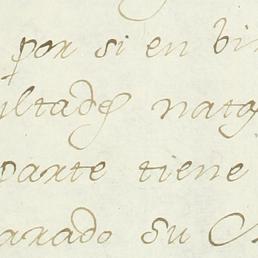 por si en vir
ultades natq
parte tiene
arado su